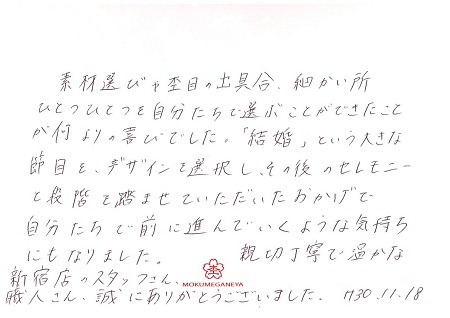 素材選びや杢目の出具合、細かい所
ひとつひとつを自分たちで選ぶことができたこと
が何よりの喜びでした。「結婚」という大きな
節目を、デザインを選択し、その後のセレモニー
と段階を踏ませていただいたおかげで
自分たちで前に進んでいくような気持ち
にもなりました。 親切丁寧で温かな
新宿店のスタッフさん、
MOKUMEGANEYA
職人さん、誠にありがとうございました。 H30.11.18